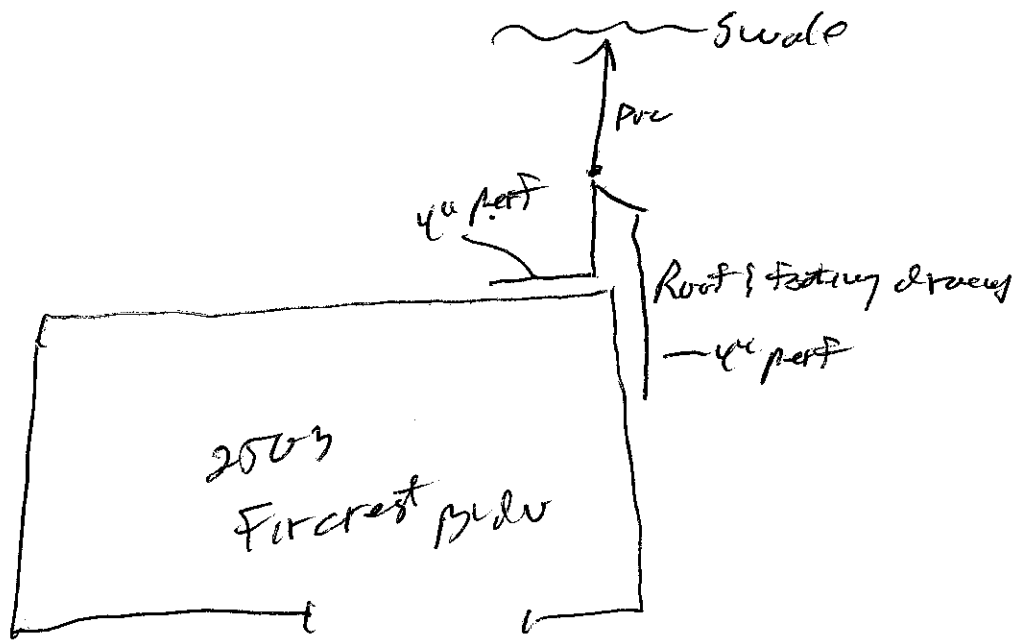 Swale
PVC
4" perf
Roof & footing drains
4" perf
2503
Fircrest Bldv